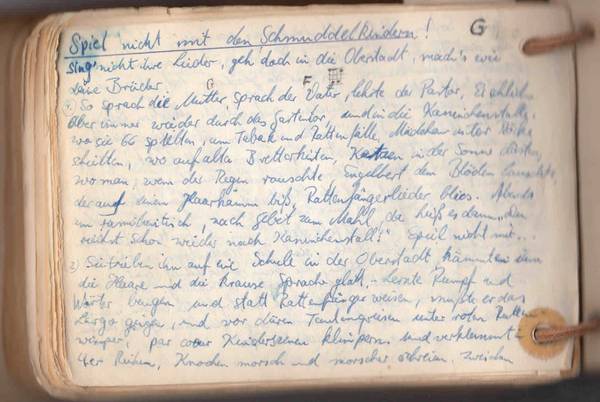 Spiel nicht mit den Schmuddelkindern! G
sing' nicht ihre Lieder, geh doch in die Oberstadt, mach's wie
deine Brüder. G F
1.) So sprach die Mutter, sprach der Vater, lehrte der Pastor, Er schlich
aber immer wieder durch das Gartentor, und in die Kaninchenställe,
wo sie 66 spielten, um Tabak und Rattenfelle, Mädchen unter Röcke
schielten, wo auf alten Bretterkisten, Katzen in der Sonne dösten,
wo man, wenn der Regen rauschte Engelbert dem Blöden lauschte,
der auf einem Haarkamm biß, Rattenfängerlieder blies. Abends
am Familientisch, nach Gebet zum Mahl, da hieß es dann „Du
riechst schon wieder nach Kaninchenstall!" Spiel nicht mit...
2.) Sie trieben ihn auf eine Schule in der Oberstadt, kämmten ihm
die Haare und die Krause Sprache glatt, - lernte Rumpf und
Wörter beugen und statt Rattenfängerweisen, mußte er das
Largo geigen, und vor dürren Tantengreisen unter roten Ratten-
wimpern, par coeur Kinderszenen klimpern und verklemmt in
4er Reihen, Knochen morsch und morscher schreien, zwischen